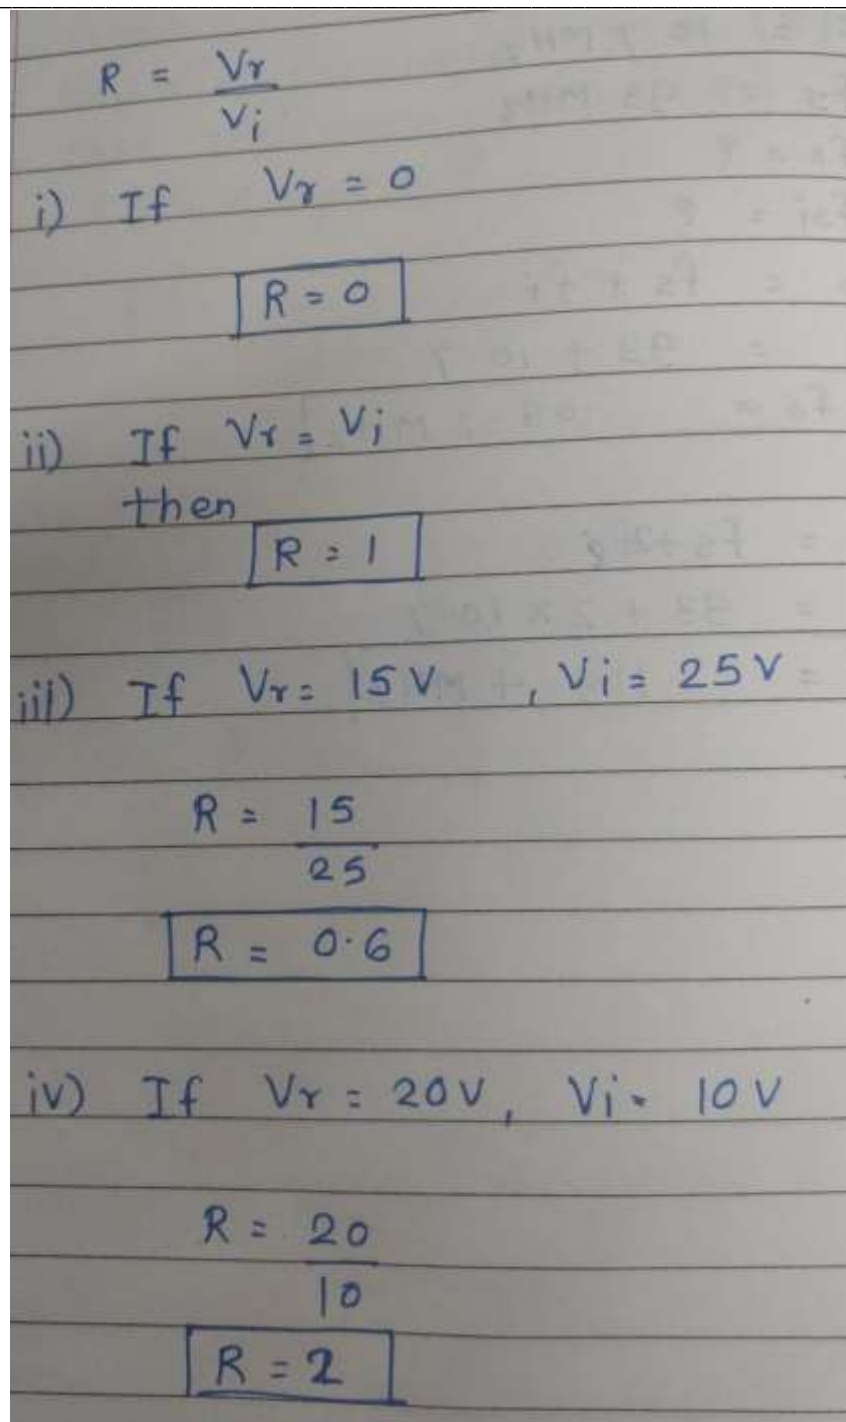 R = Vr
Vi
i) If Vr = 0
R = 0
ii) If Vr = Vi
then
R = 1
iii) If Vr = 15 V , Vi = 25 V
R = 15
25
R = 0.6
iv) If Vr = 20 V , Vi = 10 V
R = 20
10
R = 2